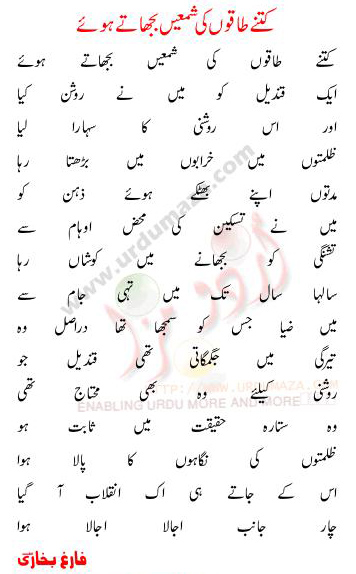 کتنے طاقوں کی شمعیں بجھاتے ہوئے
کتنے طاقوں کی شمعیں بجھاتے ہوئے
ایک قندیل کو میں نے روشن کیا
اور اس روشنی کا سہارا لیا
ظلمتوں میں خرابوں میں بڑھتا رہا
مدتوں اپنے بھٹکے ہوئے ذہن کو
میں نے تسکین کی محض اوہام سے
تشنگی کو بجھانے میں کوشاں رہا
سالہا سال تک میں تہی جام سے
میں ضیا جس کو سمجھا تھا دراصل وہ
تیرگی میں جگمگاتی تھی قندیل جو
روشنی کیلئے وہ بھی محتاج تھی
وہ ستارہ حقیقت میں ثابت ہو
ظلمتوں کی نگاہوں کا پالا ہوا
اس کے جاتے ہی اک انقلاب آ گیا
چار جانب اجالا اجالا ہوا
فارغ بخاری
www.urdumaza.com
اردو مزا
HTTP://WWW.URDUMAZA.COM
ENABLING URDU MORE AND MORE